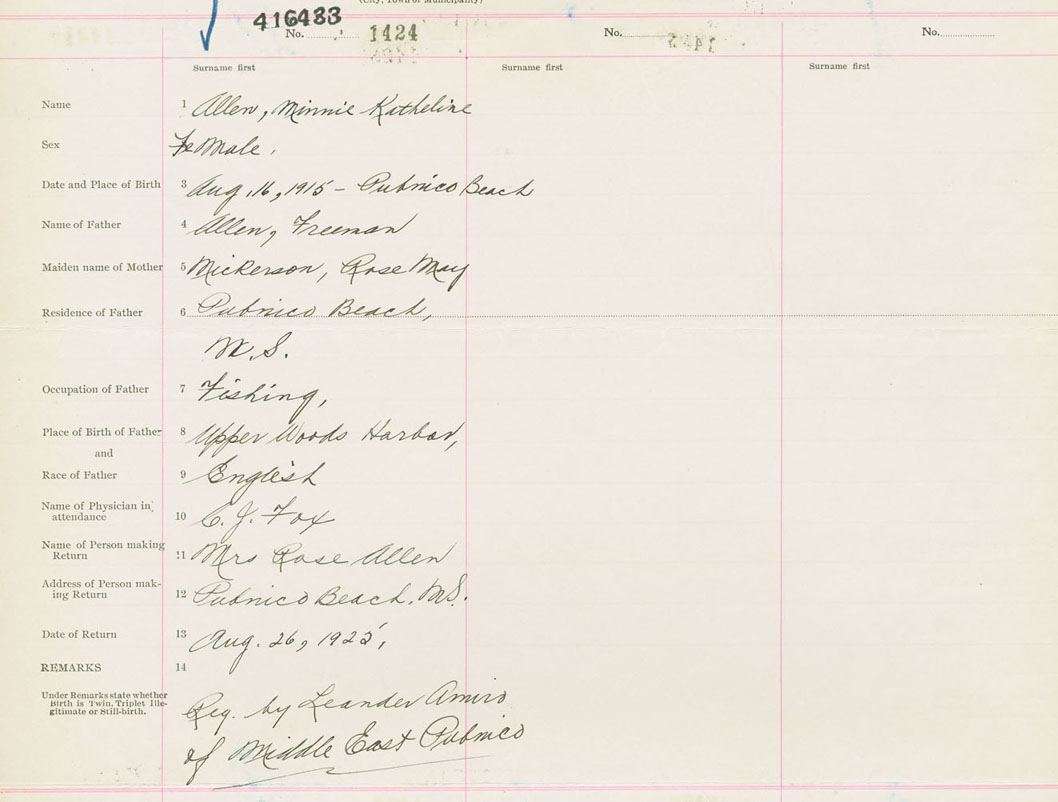 (City, Town or Municipality)
416483
No. 1424
No.
No.
Surname first
Surname first
Surname first
Name 1 Allen, Minnie Katheline
Sex FeMale.
Date and Place of Birth 3 Aug. 16, 1915 - Pubnico Beach
Name of Father 4 Allen, Freeman
Maiden name of Mother 5 Nickerson, Rose May
Residence of Father 6 Pubnico Beach,
N.S.
Occupation of Father 7 Fishing,
Place of Birth of Father 8 Upper Woods Harbor,
and
Race of Father 9 English
Name of Physician in
attendance 10 C. J. Fox
Name of Person making
Return 11 Mrs Rose Allen
Address of Person mak-
ing Return 12 Pubnico Beach. N.S.
Date of Return 13 Aug. 26, 1925,
REMARKS 14
Under Remarks state whether
Birth is Twin, Triplet Ille-
gitimate or Still-birth.
Reg. by Leander Amiro
of Middle East Pubnico